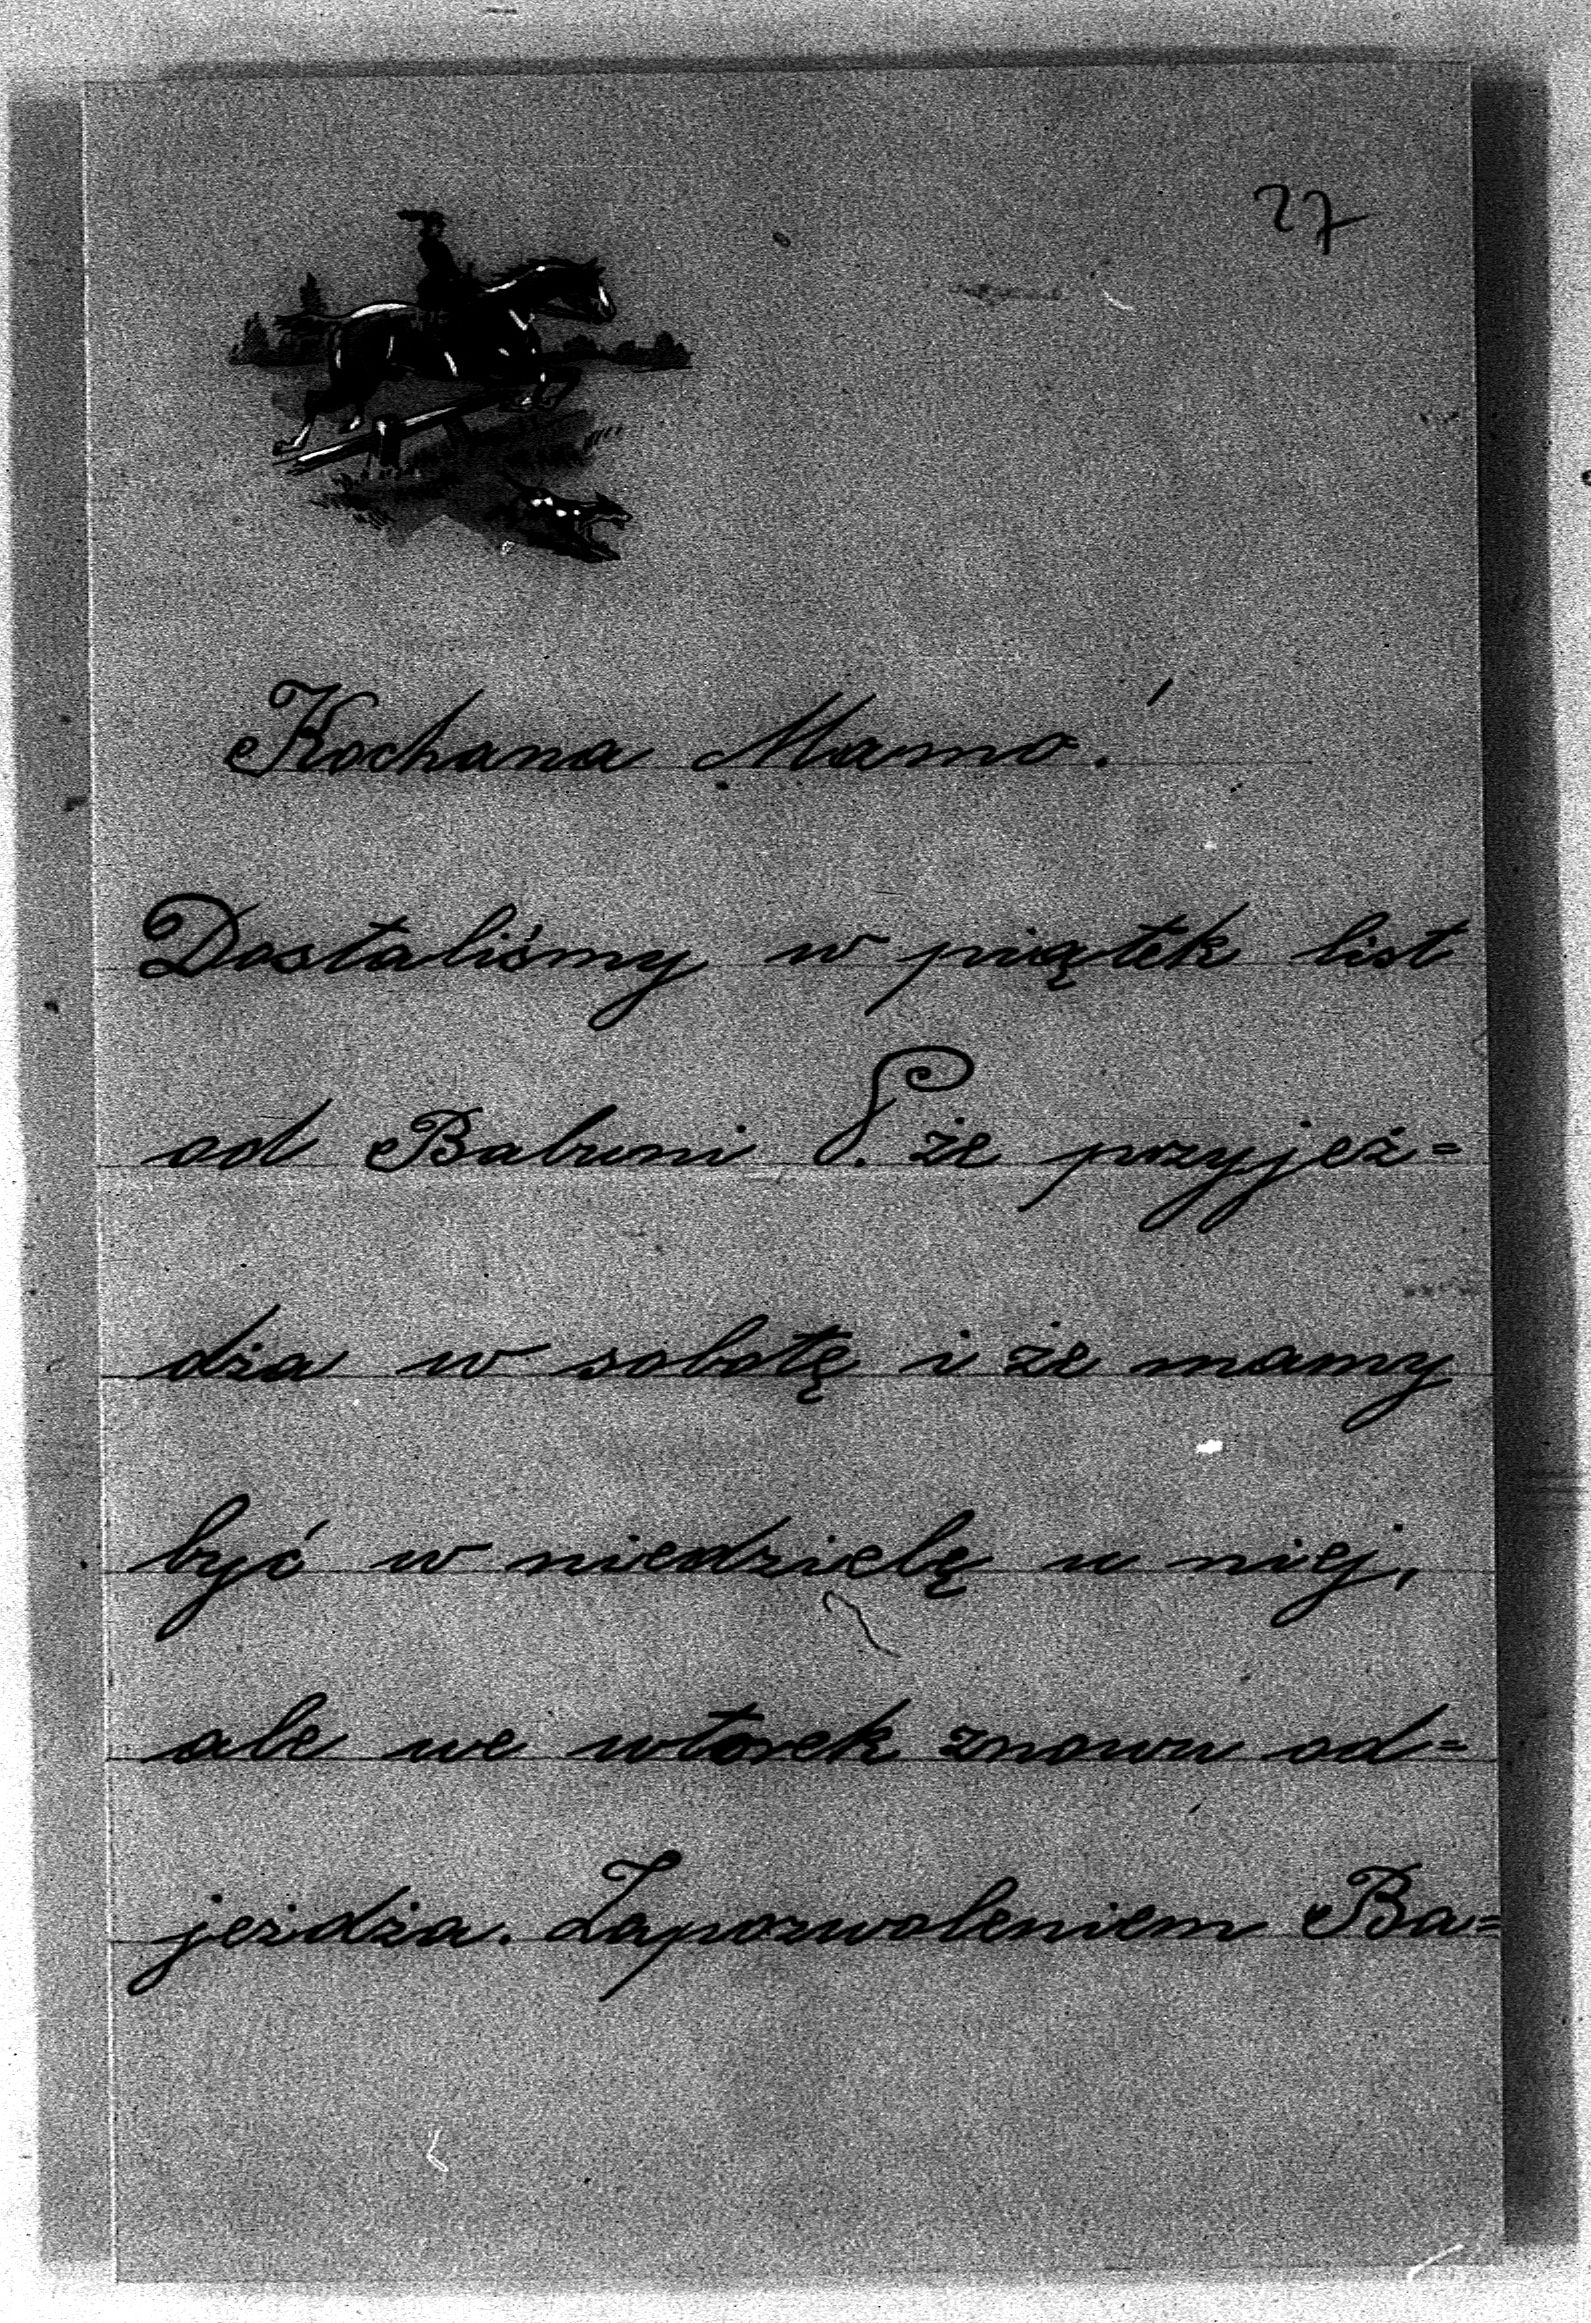 27
Kochana Mamo!
Dostaliśmy w piątek list
od Babuni P. że przyjeż=
dża w sobotę i że mamy
być w niedzielę u niej,
ale we wtorek znowu od=
jeżdża. Zapozwoleniem Ba=